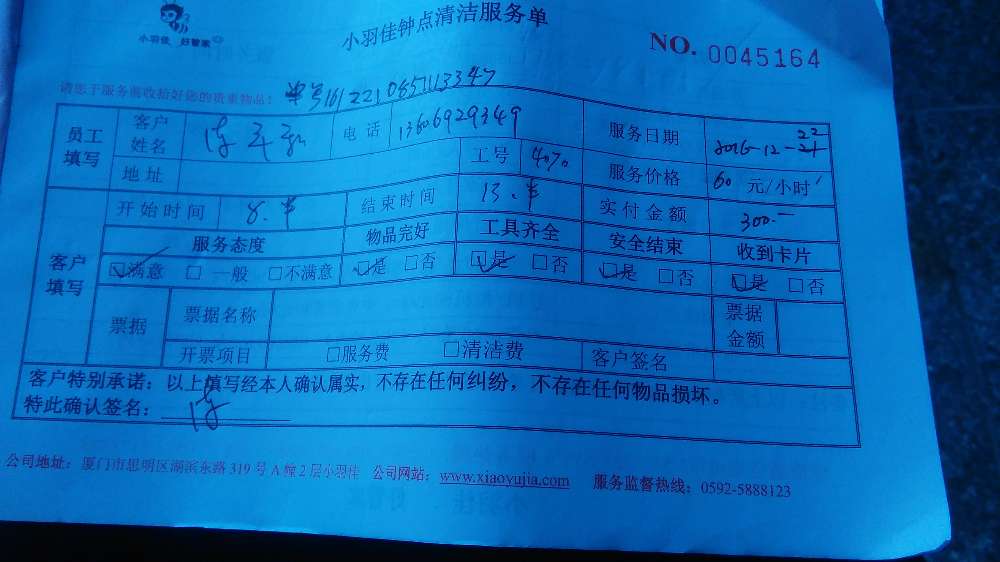 小羽佳 好管家
小羽佳钟点清洁服务单
NO. 0045164
请您于服务前收拾好您的贵重物品! 单号1612210857113347
员工填写 客户姓名 电话 13606929349 服务日期 2016-12-22
地址 工号 4070 服务价格 60 元/小时
开始时间 8.半 结束时间 13.半 实付金额 300.-
客户填写 服务态度 物品完好 工具齐全 安全结束 收到卡片
☑满意 □一般 □不满意 ☑是 □否 ☑是 □否 ☑是 □否 ☑是 □否
票据 票据名称 票据金额
开票项目 □服务费 □清洁费 客户签名
客户特别承诺：以上填写经本人确认属实，不存在任何纠纷，不存在任何物品损坏。
特此确认签名： 陈
公司地址：厦门市思明区湖滨东路319号A幢2层小羽佳 公司网站：www.xiaoyujia.com 服务监督热线：0592-5888123